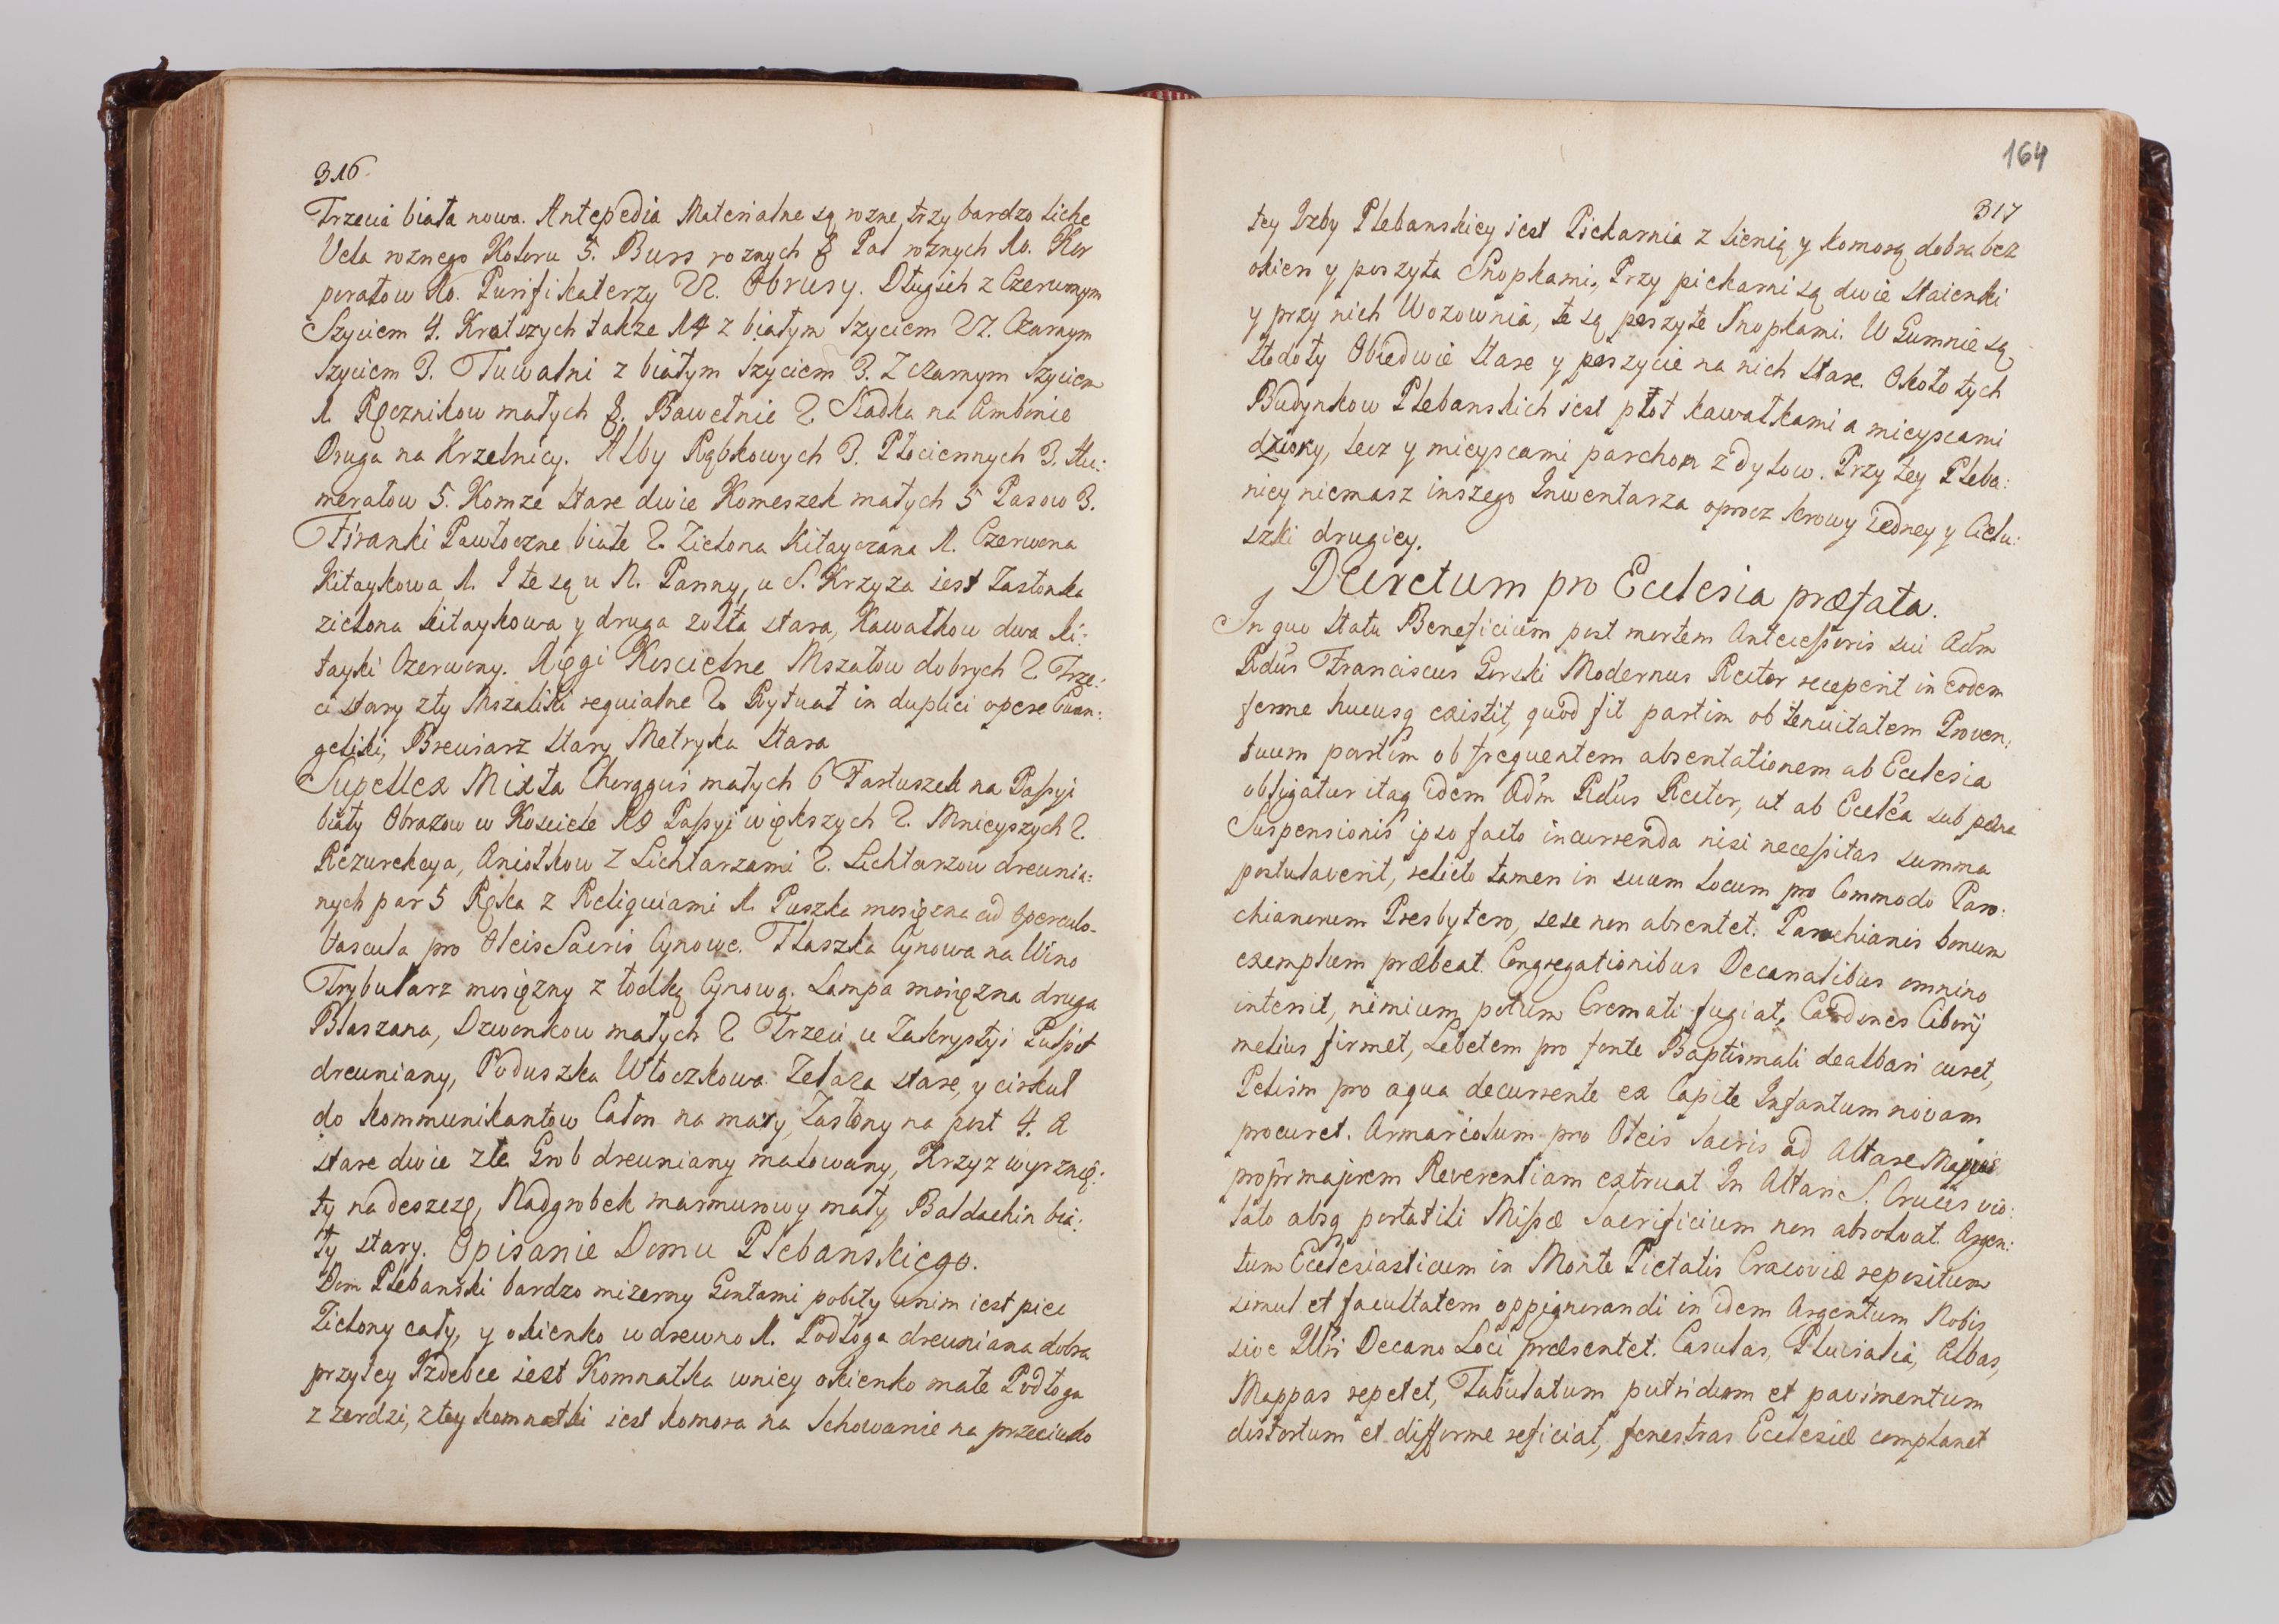 316.
Trzecia biała nowa. Antepedia Materialne są rozne trzy bardzo liche
Vela roznego Koloru 5. Burs roznych 8 Pal roznych 10. Kor
porałow 10. Purifikaterzy 22. Obrusy. Długich z Czerwonym
Szyciem 4. Kratszych takze 14 z białym Szyciem 22. Czarnym
Szyciem 3. Tuwalni z białym Szyciem 3. Z czarnym Szyciem
1. Ręcznikow małych 8. Bawełnie 2 Siadka na Ambonie
Druga na Krzelnicy. Alby Rąbkowych 3. Płociennych 3. Hu:
merałow 5. Komze stare dwie Komeszek małych 5 Pasow 3.
Firanki Pawłoczne białe 2. Zielona Kitayczana 1. Czerwona
Kitaykowa 1. I te są u N. Panny, u S. Krzyza iest Zasłonka
zielona kitaykowa y druga zołta stara, Kawałkow dwa ki:
tayki Czerwony. Xięgi Koscielne Mszałow dobrych 2 Trze:
ci stary zły Mszaliki requialne 2. Rytuał in duplici opere Ewan:
geliki, Brewiarz stary Metryka stara
Supellex Mixta Chorągwi małych 6 Fartuszek na Passyi
biały Obrazow w Kosciele 19 Passyi większych 2. Mnieyszych 2.
Rezurekcya, Aniołkow z Lichtarzami 2. Lichtarzow drewnia:
nych par 5 Ręka z Reliquiami 1. Puszka mosięzna ad operculo
Vascula pro Oleis Sacris Cynowe. Flaszka Cynowa na Wino
Trybularz mosięzny z łodką Cynową. Lampa mosięzna druga
Blaszana, Dzwonkow małych 2 Trzeci u Zakrystyi Pulpit
drewniany, Poduszka Włoczkowa Zelaza stare, y cirkuł
do kommunikantow Całon na mary, Zasłony na post 4. a
stare dwie złe Grob drewniany malowany, Krzyz wyrznię:
ty na deszczę, Nadgrobek marmurowy mały, Baldachin bia:
ły stary. Opisanie Domu Plebanskiego.
Dom Plebański bardzo mizerny Gontami pobity w nim iest piec
Zielony cały, y okienko w drewno 1. Podłoga drewniana dobra
przytey Izdebce iest Komnatka w niey okienko małe Podłoga
z zerdzi, z tey komnatki iest komora na Schowanie na przeciwko
164
317
tey Izby Plebanskiey iest Piekarnia z sienią y komorą dobra bez
okien y poszyta Snopkami, Przy piekarni są dwie staienki
y przy nich Wozownia, te są poszyte Snopkami. W Gumnie są
stodoły Obiedwie stare y poszycie na nich stare. Około tych
Budynkow Plebanskich iest płot kawałkami a mieyscami
dziury, lecz y mieyscami parchon z dylow. Przy tey Pleba:
niey niemasz inszego Inwentarza oprocz krowy iedney y Cielu:
szki drugiey.
Decretum pro Ecclesia præfata.
In quo statu Beneficium post mortem Antecessoris sui Adm
Rdus Franciscus Gorski Modernus Rector recepent in eodem
ferme hucusq existit, quod fit partim ob tenuitatem Proven:
tuum partim ob frequentem absentationem ab Ecclesia
obligatur itaq idem Adm Rdus Rector, ut ab Eccl̃a sub pæna
Suspensionis ipso facto incurrenda nisi necessitas summa
postulaverit, relicto tamen in suum locum pro Commodo Paro:
chianorum Presbytero, sese non absentet. Parochianis bonum
exemplum præbeat. Congregationibus Decanalibus omnino
intersit, nimium potum Cremati fugiat, Cardines Ciborij
melius firmet, Lebetem pro fonte Baptismali dealbari curet,
Pelvim pro aqua decurrente ex Capite Infantum novam
procuret. Armariolum pro Oleis Sacris ad Altare Majus
propr majorem Reverentiam extruat In Altari S. Crucis vio:
lato absq portatili Missæ Sacrificium non absolvat. Argen:
tum Ecclesiasticum in Monte Pietatis Cracoviæ repositum
simul et facultatem oppignorandi in idem Argentum Nobis
sive Illri Decano Loci præsentet. Casulas, Pluvialia, Albas,
Mappas repetet, Tabulatum putridum et pavimentum
distortum et difforme reficiat, fenestras Ecclesiæ complanet